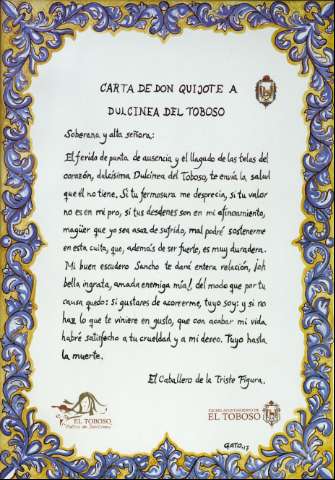 CARTA DE DON QUIJOTE A
DULCINEA DEL TOBOSO
Soberana y alta señora:
El ferido de punta de ausencia y el llagado de las telas del
corazón, dulcísima Dulcinea del Toboso, te envía la salud
que él no tiene. Si tu fermosura me desprecia, si tu valor
no es en mi pro, si tus desdenes son en mi afincamiento,
magüer que yo sea asaz de sufrido, mal podré sostenerme
en esta cuita, que, además de ser fuerte, es muy duradera.
Mi buen escudero Sancho te dará entera relación, ¡oh
bella ingrata, amada enemiga mía!, del modo que por tu
causa quedo: si gustares de acorrerme, tuyo soy; y si no
haz lo que te viniere en gusto, que con acabar mi vida
habré satisfecho a tu crueldad y a mi deseo. Tuyo hasta
la muerte.
El Caballero de la Triste Figura.
EL TOBOSO
Patria de Dulcinea
EXCMO. AYUNTAMIENTO DE
EL TOBOSO